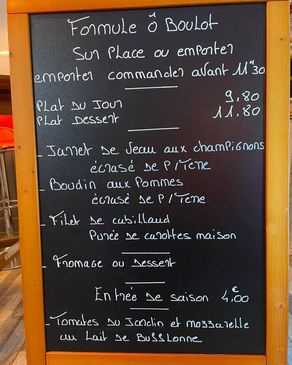 Formule Ô Boulot
Sur Place ou emporter
emporter commander avant 11H30
Plat du Jour 9,80
Plat Dessert 11.80
- Jarret de veau aux champignons
écrasé de P/Terre
- Boudin aux Pommes
écrasé de P/Terre
- Filet de cabillaud
Purée de carottes maison
- Fromage ou Dessert
Entrée de saison 4,00€
- Tomates du Jardin et mozzarella
au lait de Bufflonne